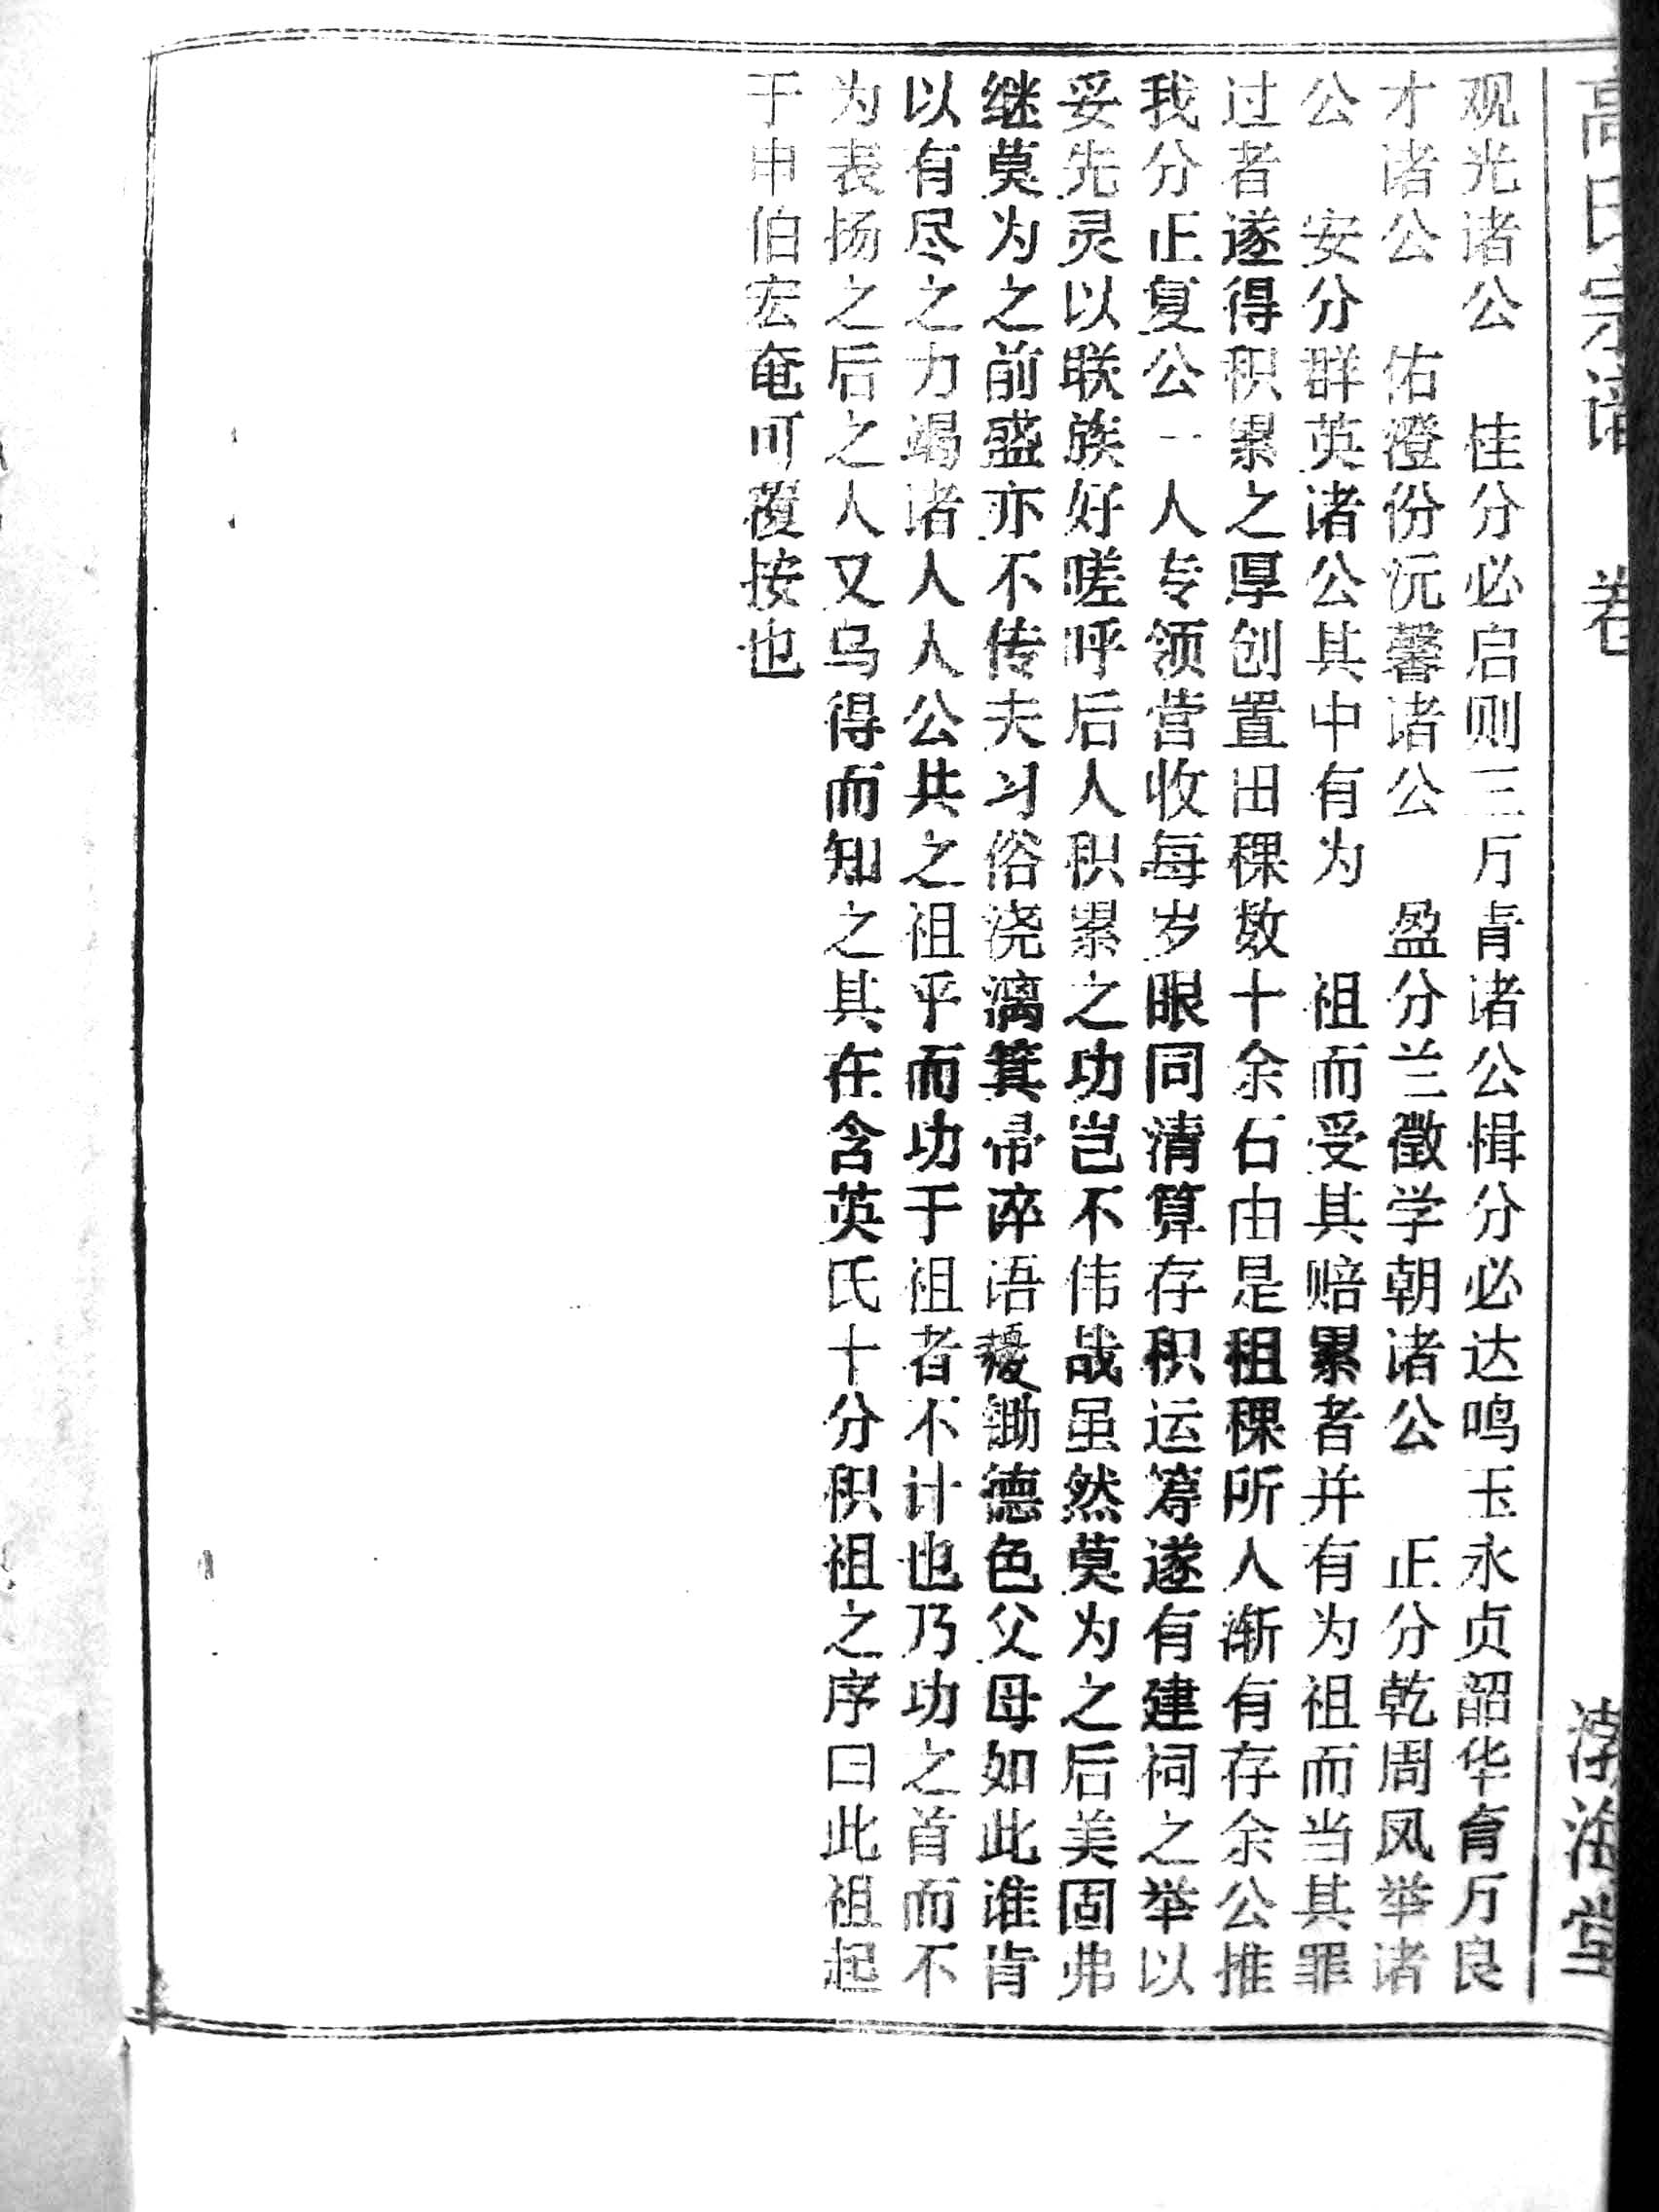 高氏宗谱 卷 渤海堂
观光诸公 桂分必启则三万青诸公楫分必达鸣玉永贞韶华育万良
才诸公 佑澄份沅馨诸公 盈分兰徵学朝诸公 正分乾周凤举诸
公 安分群英诸公其中有为 祖而受其赔累者并有为祖而当其罪
过者遂得积累之厚创置田稞数十余石由是租稞所人渐有存余公推
我分正复公一人专领营收每岁眼同清算存积运筹遂有建祠之举以
妥先灵以联族好嗟呼后人积累之功岂不伟哉虽然莫为之后美固弗
继莫为之前盛亦不传夫习俗浇漓箕帚谇语耰锄德色父母如此谁肯
以有尽之力竭诸人人公共之祖乎而功于祖者不计也乃功之首而不
为表扬之后之人又乌得而知之其在含英氏十分积祖之序曰此祖起
于申伯宏奄可覆按也